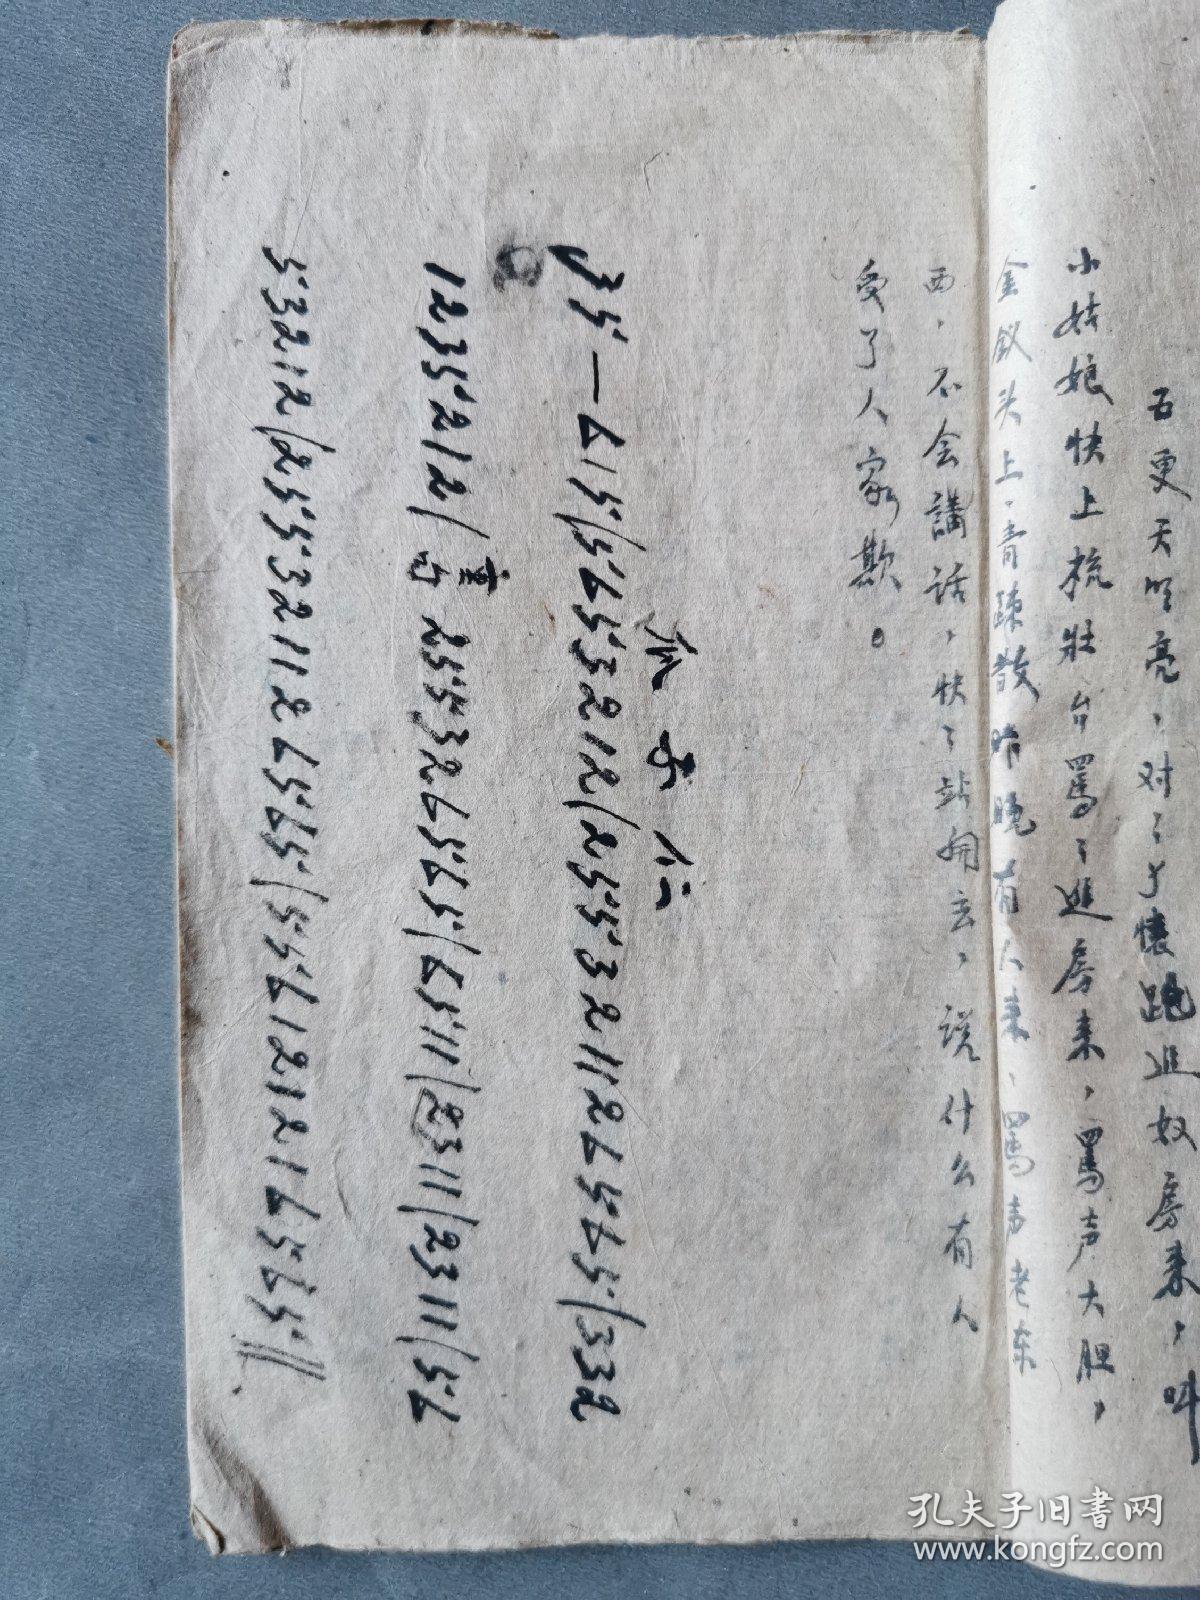 五更天明亮，对〻丫环跑进奴房来，叫
小姑娘快上梳壮台骂〻进房来，骂声大胆，
金钗头上，青踈散昨晚有人来，骂声老东
西，不会講话，快〻站開去，说什么有人
受了人家欺。
瓜子仁
35一615/5653212/255321126545/332
1235212/重句255326565/6511/2311/2311/56
53212/255321126565/556121216565//
孔夫子旧书网
www.kongfz.com